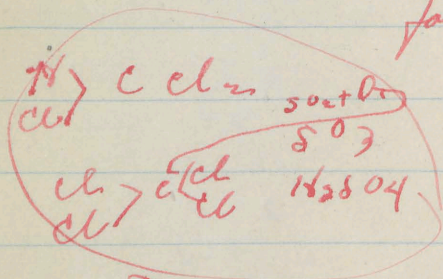 H
Cl > C Cl2 SO2 + O2
SO3
Cl
Cl > C Cl
Cl H2SO4